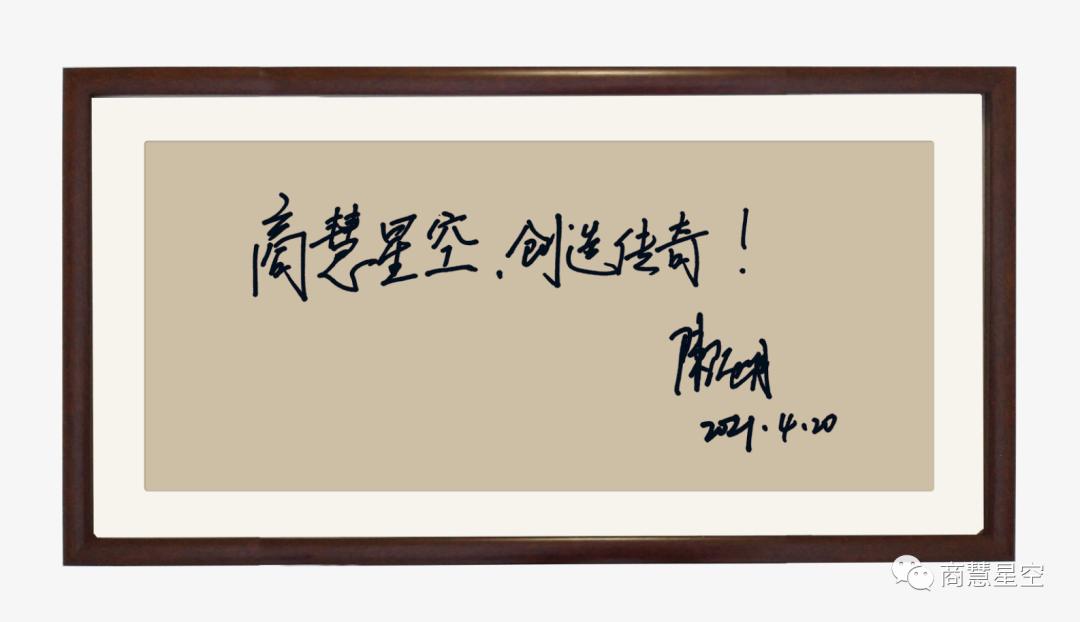 商慧星空,创造传奇!
2021.4.20
商慧星空